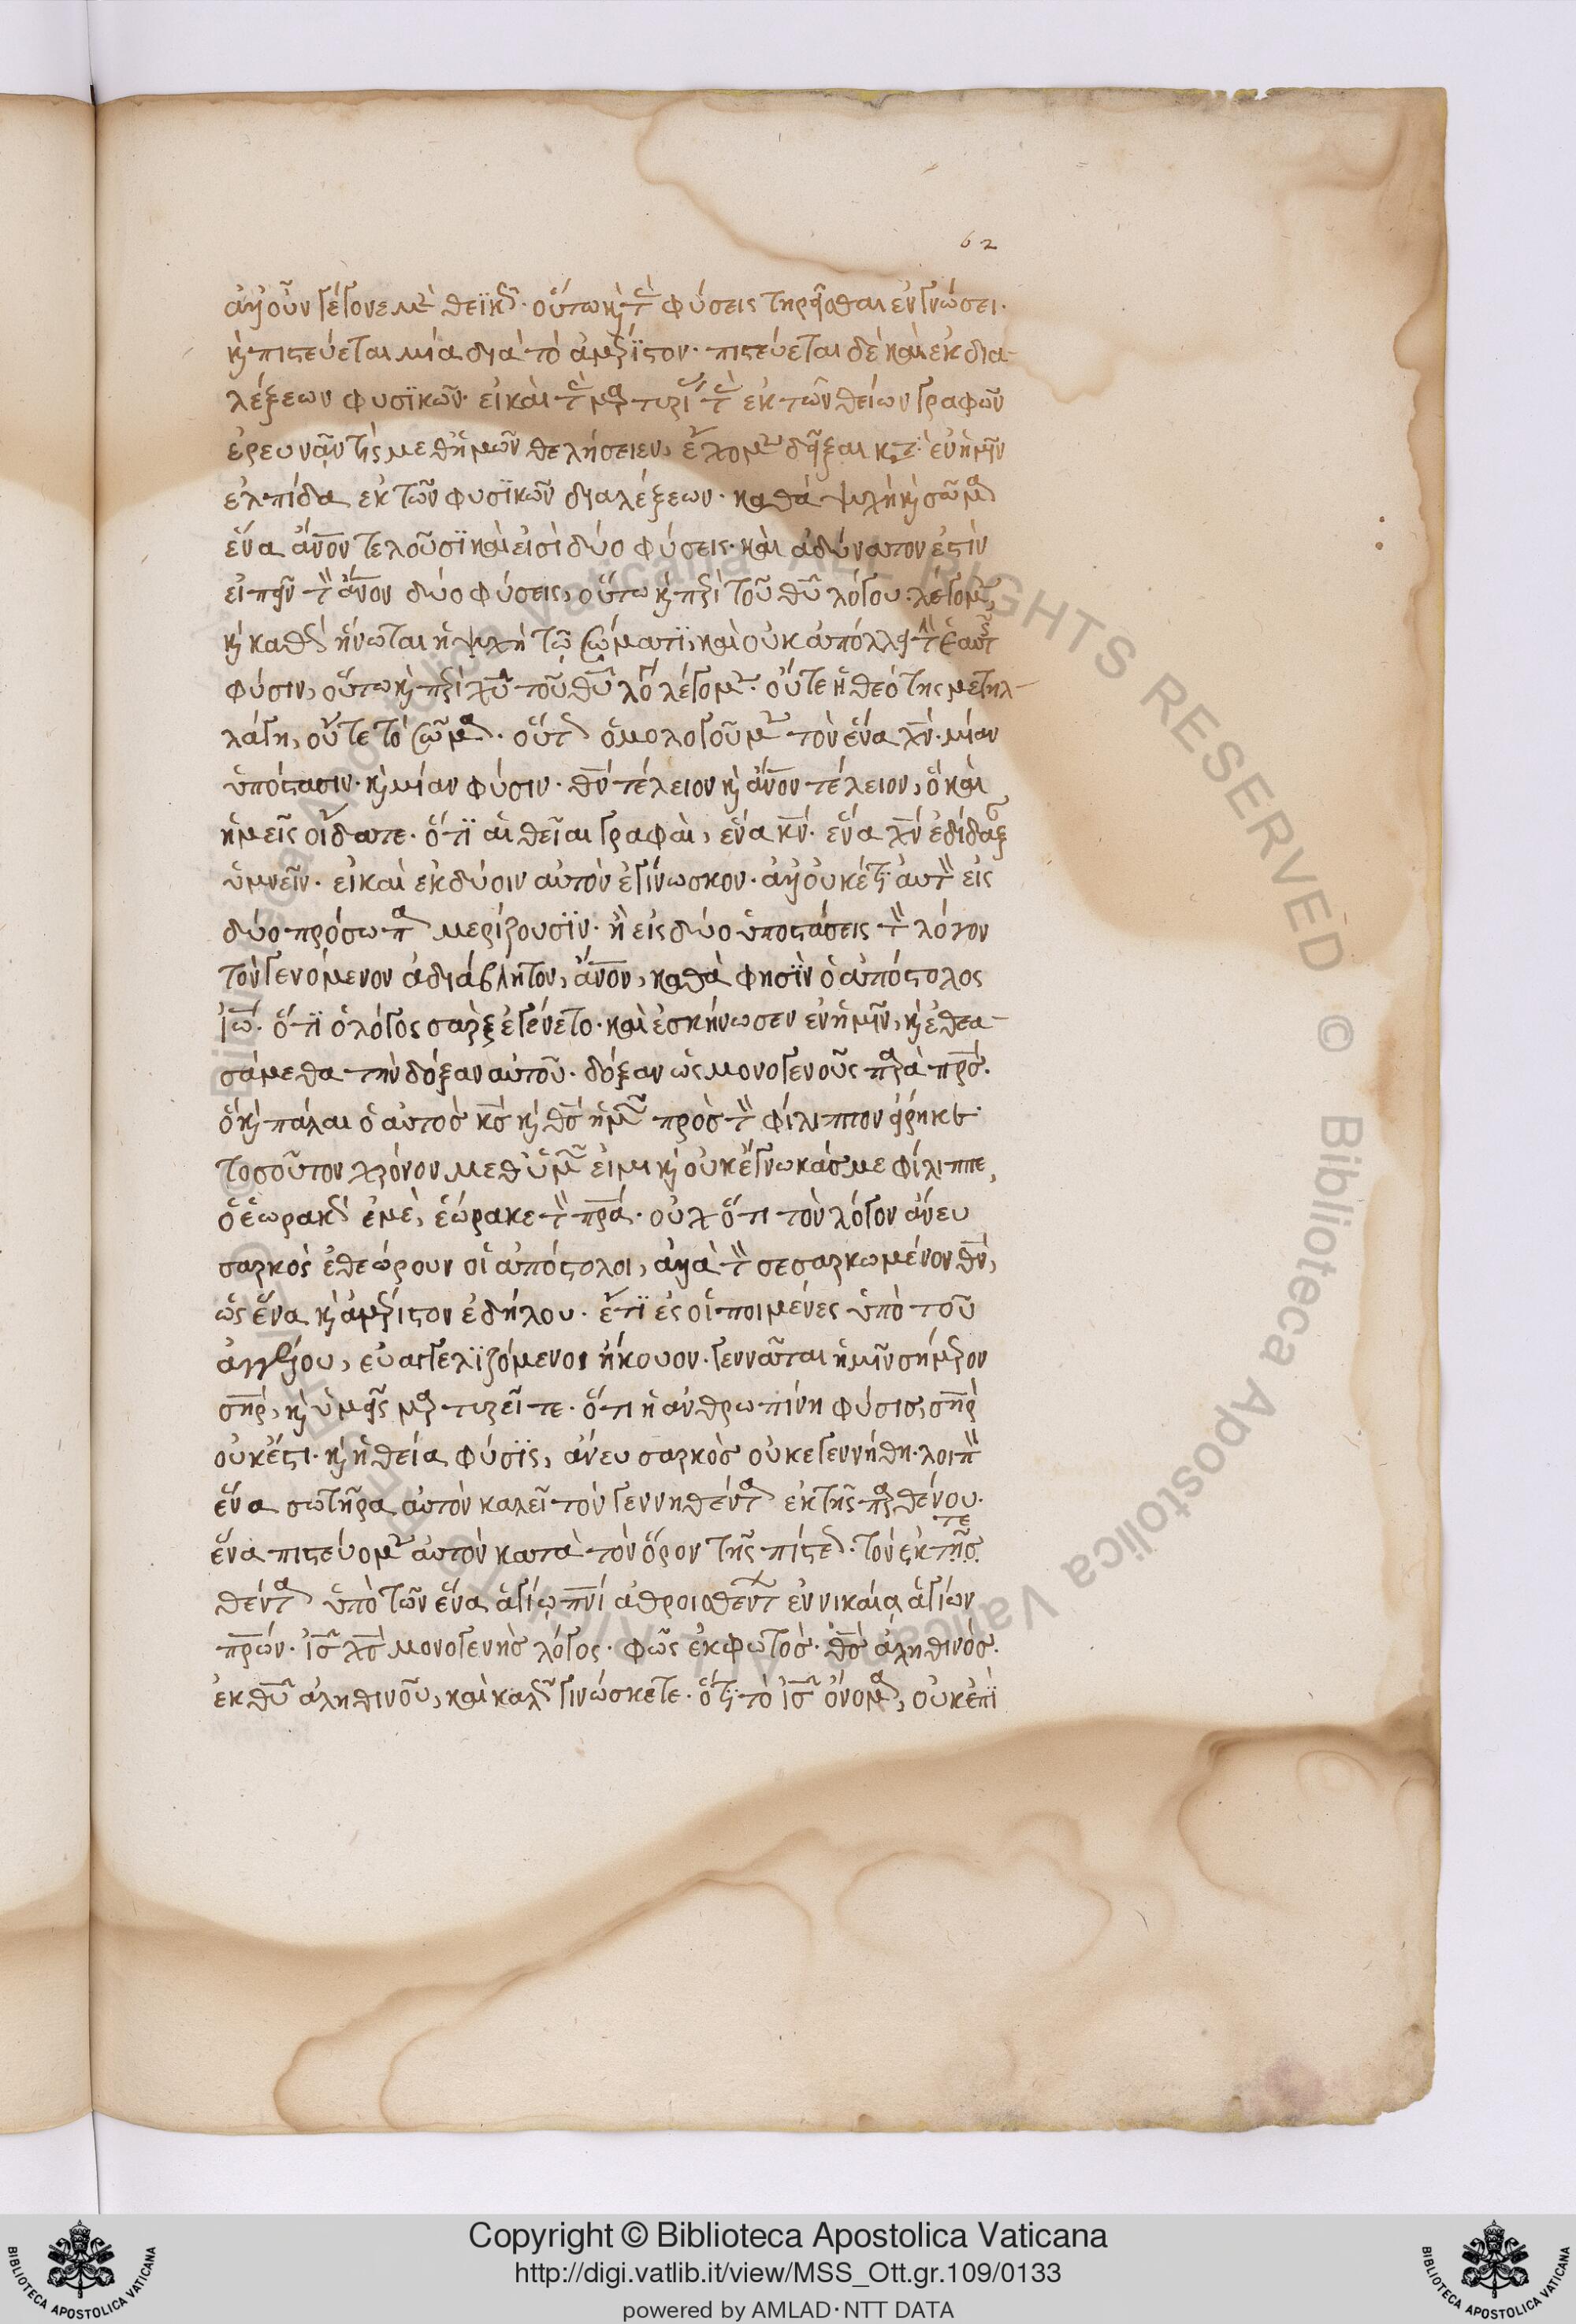 62
ἀλλ' οὖν γέγονε μὲν θεϊκῶς· οὕτω καὶ τὰς φύσεις τηρεῖσθαι ἐν γνώσει·
καὶ πιστεύεται μία διὰ τὸ ἀμέριστον· πιστεύεται δὲ καὶ ἐκ δια-
λέξεων φυσϊκῶν· εἰ καὶ τὰς μαρτυρίας τὰς ἐκ τῶν θείων γραφῶν
ἐρευνᾶν τὶς μεθ' ἡμῶν θελήσειεν, ἔχομεν δεῖξαι κατὰ τὴν ἐν ἡμῖν
ἐλπίδα ἐκ τῶν φυσϊκῶν διαλέξεων· καθὰ ψυχὴ καὶ σῶμα
ἕνα ἄνον τελοῦσϊ καὶ εἰσὶ δύο φύσεις· καὶ ἀδύνατον ἐστὶν
εἰπεῖν τὸν ἄνον δύο φύσεις, οὕτω καὶ περὶ τοῦ θυ λόγου λέγομεν,
καὶ καθὼς ἥνωται ἡ ψυχὴ τῷ σώματϊ, καὶ οὐκ ἀπόλλει τὴν ἑαυτῆς
φύσιν, οὕτω καὶ περὶ χυ τοῦ θυ λόγου λέγομεν· οὔτε ἡ θεότης μετηλ-
λάγη, οὔτε τὸ σῶμα· οὕτως ὁμολογοῦμεν τὸν ἕνα χν· μίαν
ὑπόστασιν· καὶ μίαν φύσιν· θν τέλειον καὶ ἄνον τέλειον, ὃ καὶ
ἡμεῖς οἴδατε· ὅτϊ αἱ θεῖαι γραφαὶ, ἕνα κν· ἕνα χν ἐδίδαξαν
ὑμνεῖν· εἰ καὶ ἐκ δύσιν αὐτὸν ἐγίνωσκον· ἀλλ' οὐκέτϊ αὐτὸν εἰς
δύο πρόσωπα μερίζουσϊν· ἢ εἰς δύο ὑποστάσεις τὸν λόγον
τὸν γενόμενον ἀδιάβλητον, ἄνον, καθὰ φησϊν ὁ ἀπόστολος
ἰω· ὅτϊ ὁ λόγος σαρξ ἐγένετο· καὶ ἐσκήνωσεν ἐν ἡμῖν, καὶ ἐθεα-
σάμεθα τὴν δόξαν αὐτοῦ· δόξαν ὡς μονογενοῦς παρὰ πρς·
ὃ καὶ πάλαι ὁ αὐτὸς κς καὶ θς ἡμῶν πρὸς τὸν φίλιππον εἴρηκε·
τοσοῦτον χρόνον μεθ' ὑμῶν εἰμι καὶ οὐκ ἔγνωκάς με φίλιππε,
ὁ ἑωρακὼς ἐμὲ, ἑώρακε τὸν πρα· οὐχ ὅτι τὸν λόγον ἄνευ
σαρκὸς ἐθεώρουν οἱ ἀπόστολοι, ἀλλὰ τὸν σεσαρκωμένον θν,
ὡς ἕνα καὶ ἀμέριστον ἐδήλου· ἔτϊ ἐς οἱ ποιμένες ὑπὸ τοῦ
ἀγγέλου, εὐαγγελϊζόμενοι ἤκουον· γεννᾶται ἡμῖν σήμερον
σηρ, καὶ ὑμεῖς μαρτυρεῖτε· ὅτι ἡ ἀνθρωπίνη φύσις, σηρ
οὐκ ἔστι· καὶ ἡ θεία φύσϊς, ἄνευ σαρκὸς οὐκ ἐγεννήθη· λοιπὸν
ἕνα σωτῆρα αὐτὸν καλεῖ τὸν γεννηθέντα ἐκ τῆς παρθένου·
ἕνα πιστεύομεν αὐτὸν κατὰ τὸν ὅρον τῆς πίστεως· τὸν ἐκτεθ
θέντα ὑπὸ τῶν ἕνα ἁγίῳ πνι ἀθροισθέντων ἐν νικαία ἁγίων
πρων· ις χς μονογενὴς λόγος· φῶς ἐκ φωτός· θς ἀληθινός·
ἐκ θυ ἀληθινοῦ, καὶ καλῶς γινώσκετε· ὅτϊ τὸ ις ὄνομα, οὐκ ἐπϊ
Copyright © Biblioteca Apostolica Vaticana
http://digi.vatlib.it/view/MSS_Ott.gr.109/0133
powered by AMLAD·NTT DATA